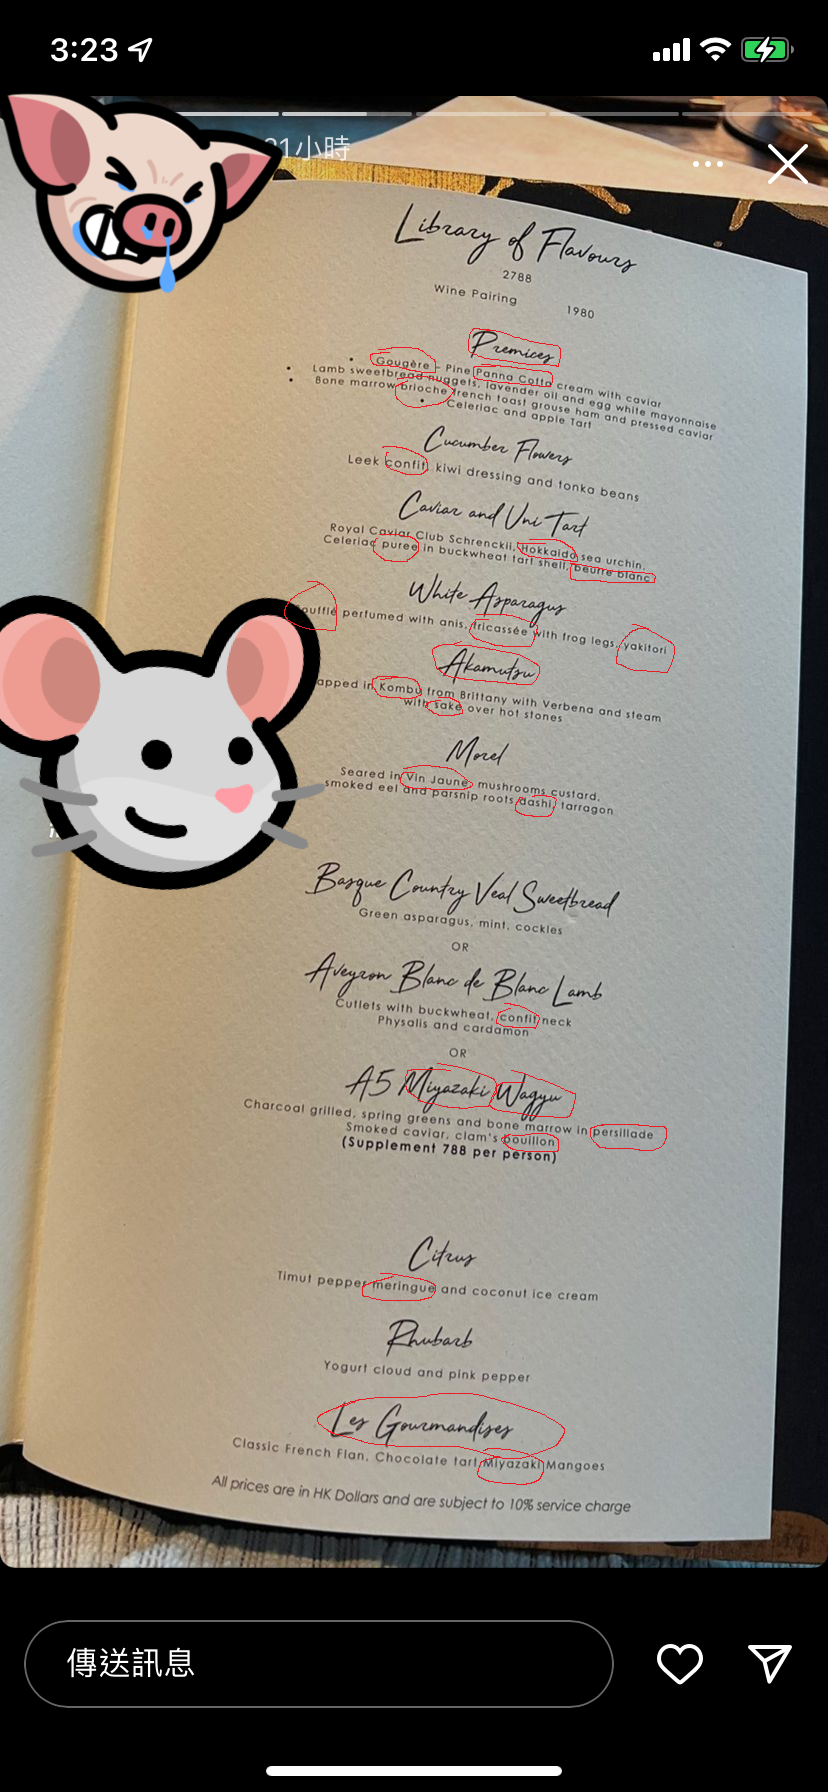 3:23
21小時
Library of Flavours
2788
Wine Pairing 1980
Premices
• Gougère - Pine Panna Cotta cream with caviar
• Lamb sweetbread nuggets, lavender oil and egg white mayonnaise
• Bone marrow brioche french toast grouse ham and pressed caviar
• Celeriac and apple Tart
Cucumber Flowers
Leek confit, kiwi dressing and tonka beans
Caviar and Uni Tart
Royal Caviar Club Schrenckii, Hokkaido sea urchin,
Celeriac puree in buckwheat tart shell, beurre blanc
White Asparagus
oufflé perfumed with anis, fricassée with frog legs, yakitori
Akamutsu
apped in Kombu from Brittany with Verbena and steam
with sake over hot stones
Morel
Seared in Vin Jaune, mushrooms custard,
smoked eel and parsnip roots dashi, tarragon
Basque Country Veal Sweetbread
Green asparagus, mint, cockles
OR
Aveyron Blanc de Blanc Lamb
Cutlets with buckwheat, confit neck
Physalis and cardamon
OR
A5 Miyazaki Wagyu
Charcoal grilled, spring greens and bone marrow in persillade
Smoked caviar, clam's bouillon
(Supplement 788 per person)
Citrus
Timut pepper meringue and coconut ice cream
Rhubarb
Yogurt cloud and pink pepper
Les Gourmandises
Classic French Flan, Chocolate tart, Miyazaki Mangoes
All prices are in HK Dollars and are subject to 10% service charge
傳送訊息